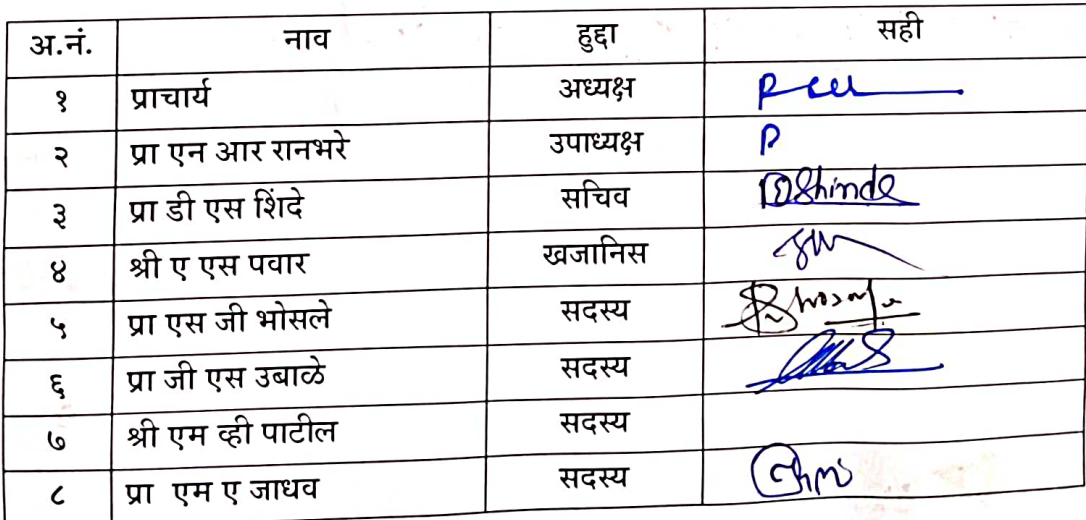 अ.नं. नाव हुद्दा सही
१ प्राचार्य अध्यक्ष
२ प्रा एन आर रानभरे उपाध्यक्ष
३ प्रा डी एस शिंदे सचिव DShinde
४ श्री ए एस पवार खजानिस
५ प्रा एस जी भोसले सदस्य
६ प्रा जी एस उबाळे सदस्य
७ श्री एम व्ही पाटील सदस्य
८ प्रा एम ए जाधव सदस्य